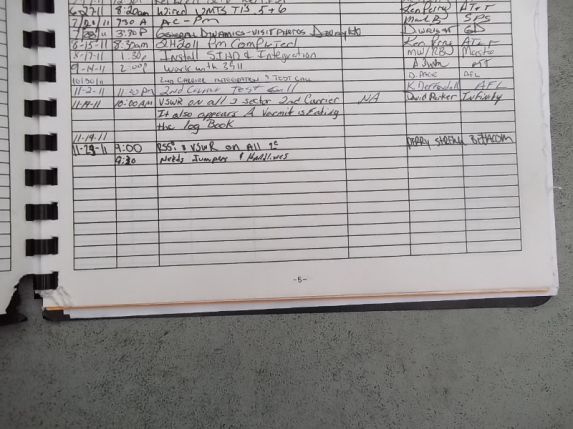 6-27-11 8:20am Wired UMTS T1S 5+6 Ken Pirro AT&T
11 730 A AC-Pm Mark B SPS
11 3:30P General Dynamics - Visit Photos GD
6-15-11 8:50am 2H2011 Pm Completed Ken Pirro AT&T
8-17-11 1:30p Install & Integration
9-14-11 2:00P Work with 3911 ATT
10/30/11 2nd Carrier Integration & Test Call D. Pace AFL
11-2-11 11:30 Pm 2nd Carrier Test Call AFL
11-14-11 10:00AM VSWR on all 3 sector 2nd Carrier NA David Parker Infinity
It also appears A Vermit is Eating
the log Book
11-14-11
11-29-11 9:00 & VSWR on All Perry BETACOM
9:30 Needs Jumpers & Hardlines
-5-